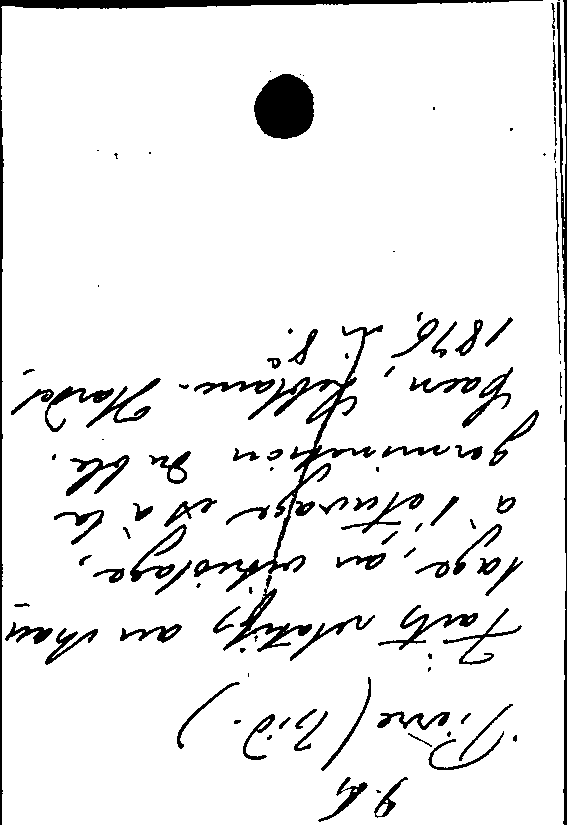 Pierre (Isid.)
Faits relatifs au chau-
lage, au vitriolage,
à l'étuvage et à la
germination du blé.
Caen, Leblanc-Hardel,
1876, in 8°.